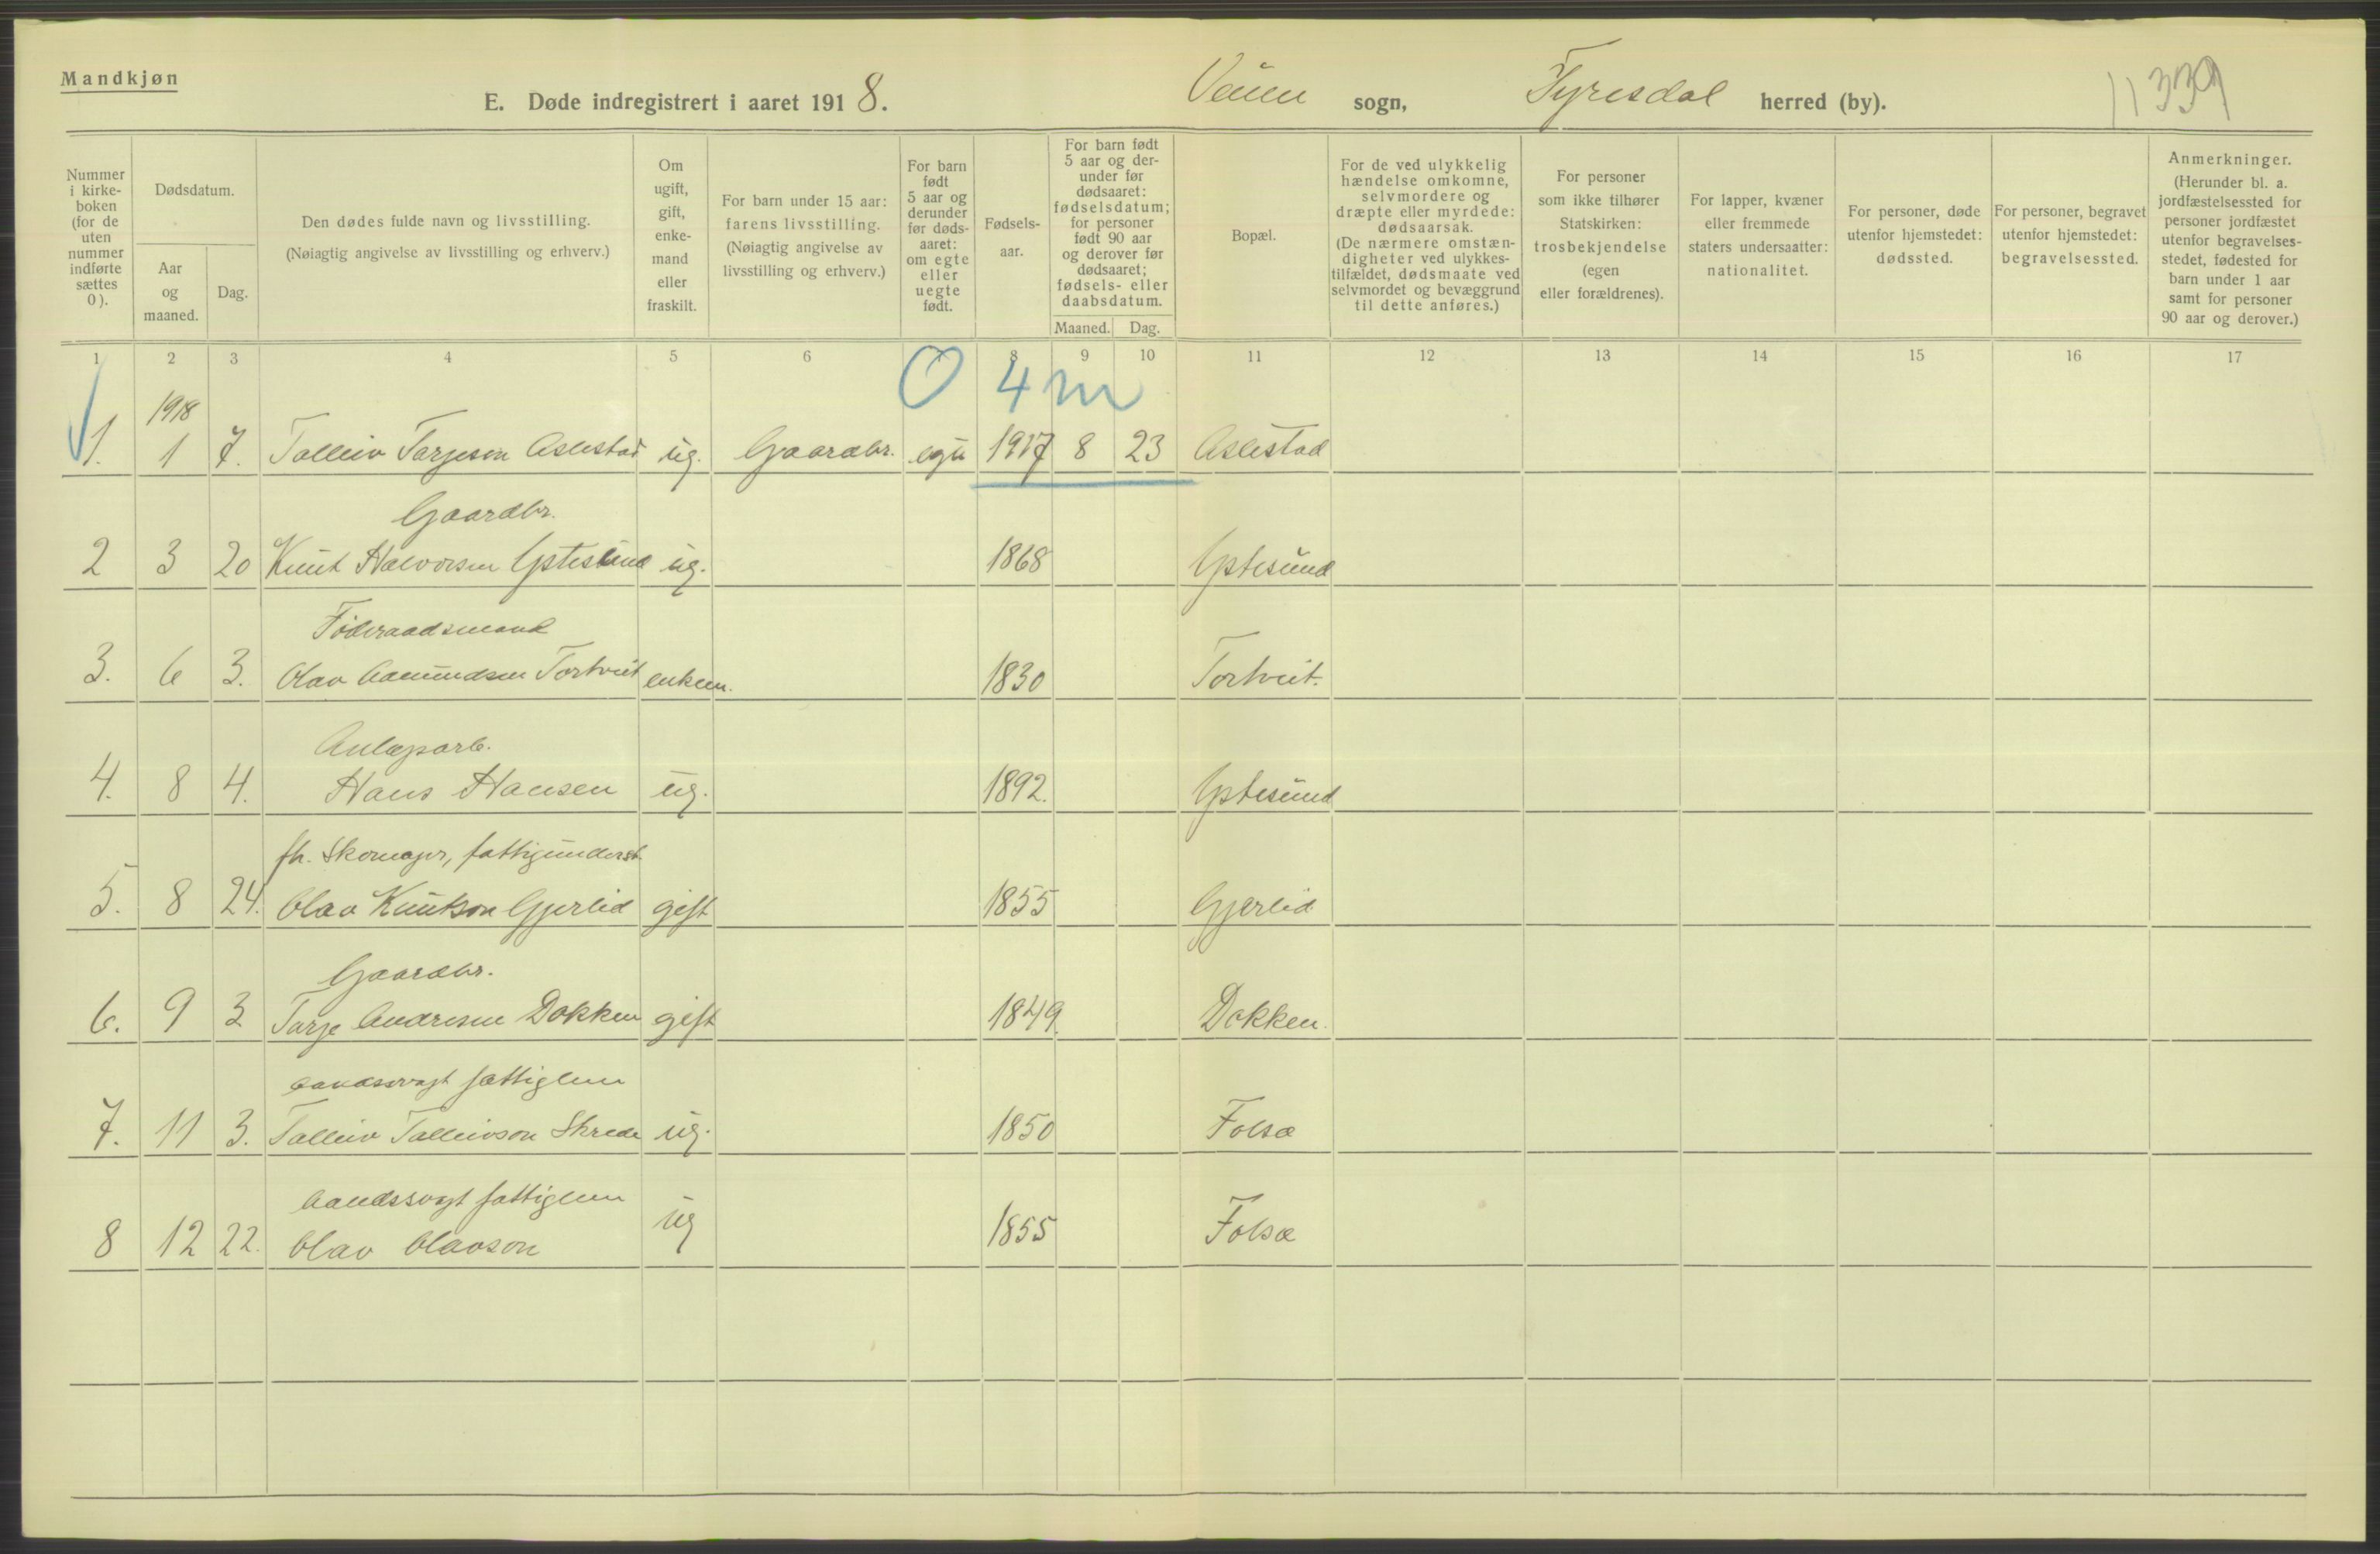 Mandkjøn
E. Døde indregistrert i aaret 1918. Veum sogn, Tyresdal herred (by). 11339
Nummer i kirke-boken (for de uten nummer indførte sættes 0).
Dødsdatum.
Aar og maaned.
Dag.
Den dødes fulde navn og livsstilling.
(Nøiagtig angivelse av livsstilling og erhverv.)
Om ugift, gift, enke-mand eller fraskilt.
For barn under 15 aar: farens livsstilling.
(Nøiagtig angivelse av livsstilling og erhverv.)
For barn født 5 aar og derunder før døds-aaret: om egte eller uegte født.
Fødsels-aar.
For barn født 5 aar og der-under før dødsaaret: fødselsdatum; for personer født 90 aar og derover før dødsaaret; fødsels- eller daabsdatum.
Maaned.
Dag.
Bopæl.
For de ved ulykkelig hændelse omkomne, selvmordere og dræpte eller myrdede: dødsaarsak.
(De nærmere omstæn-digheter ved ulykkes-tilfældet, dødsmaate ved selvmordet og bevæggrund til dette anføres.)
For personer som ikke tilhører Statskirken: trosbekjendelse (egen eller forældrenes).
For lapper, kvæner eller fremmede staters undersaatter: nationalitet.
For personer, døde utenfor hjemstedet: dødssted.
For personer, begravet utenfor hjemstedet: begravelsessted.
Anmerkninger.
(Herunder bl. a. jordfæstelsessted for personer jordfæstet utenfor begravelses-stedet, fødested for barn under 1 aar samt for personer 90 aar og derover.)
1 2 3 4 5 6 7 8 9 10 11 12 13 14 15 16 17
0 4 m
1918
1. 1 7. Talleiv Tarjeson Aslestad ug. Gaardbr. egte 1917 8 23 Aslestad
Gaardbr.
2 3 20 Knut Halvorsen Ystesund ug. 1868 Ystesund
Føderaadsmand
3. 6 3. Olav Aamundsen Tortveit enkem. 1830 Tortveit.
Anlægsarb.
4. 8 4. Hans Hansen ug. 1892. Ystesund
fh. Skomager, fattigunderst.
5. 8 24. Olav Knutson Gjerlid gift 1855 Gjerlid
Gaardbr.
6. 9 3 Tarje Andresen Dokken gift 1849. Dokken.
aandssvagt fattiglem
7. 11 3. Talleiv Talleivson Skrede ug. 1850 Folsæ
Aandssvagt fattiglem
8 12 22. Olav Olavson ug 1855 Folsæ